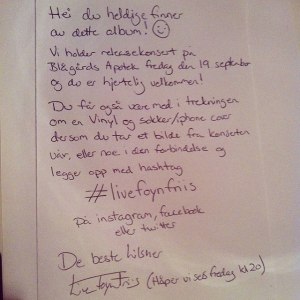 Hei du heldige finner
av dette album! ☺
Vi holder releasekonsert på
Blågårds Apotek fredag den 19 september
og du er hjertelig velkommen!
Du får også være med i trekningen
om en Vinyl og sokker/phone cover
dersom du tar et bilde fra konserten
vår, eller noe i den forbindelse og
legger opp med hashtag
#livefoynfriis
på instagram, facebook
eller twitter
De beste hilsner
Live Foyn Friis (Håper vi ses fredag kl 20)